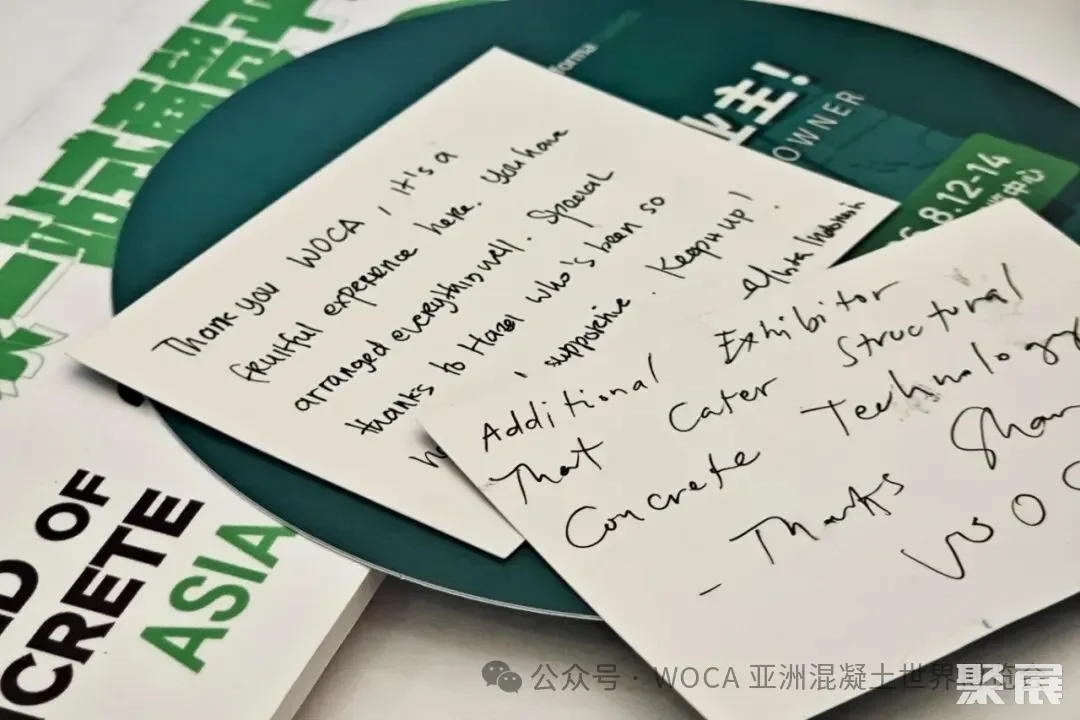 Thank you WOCA, it's a
fruitful experience here. You have
arranged everything well. Special
thanks to Hazel who's been so
supportive. Keep it up!
Additional Exhibitor
That Cater Structural
Concrete Technology
- Thanks
WOC
业主!
OWNER
8.12-14
OF
CRETE
ASIA
一站式商贸平
公众号 · WOCA 亚洲混凝土世界
聚展